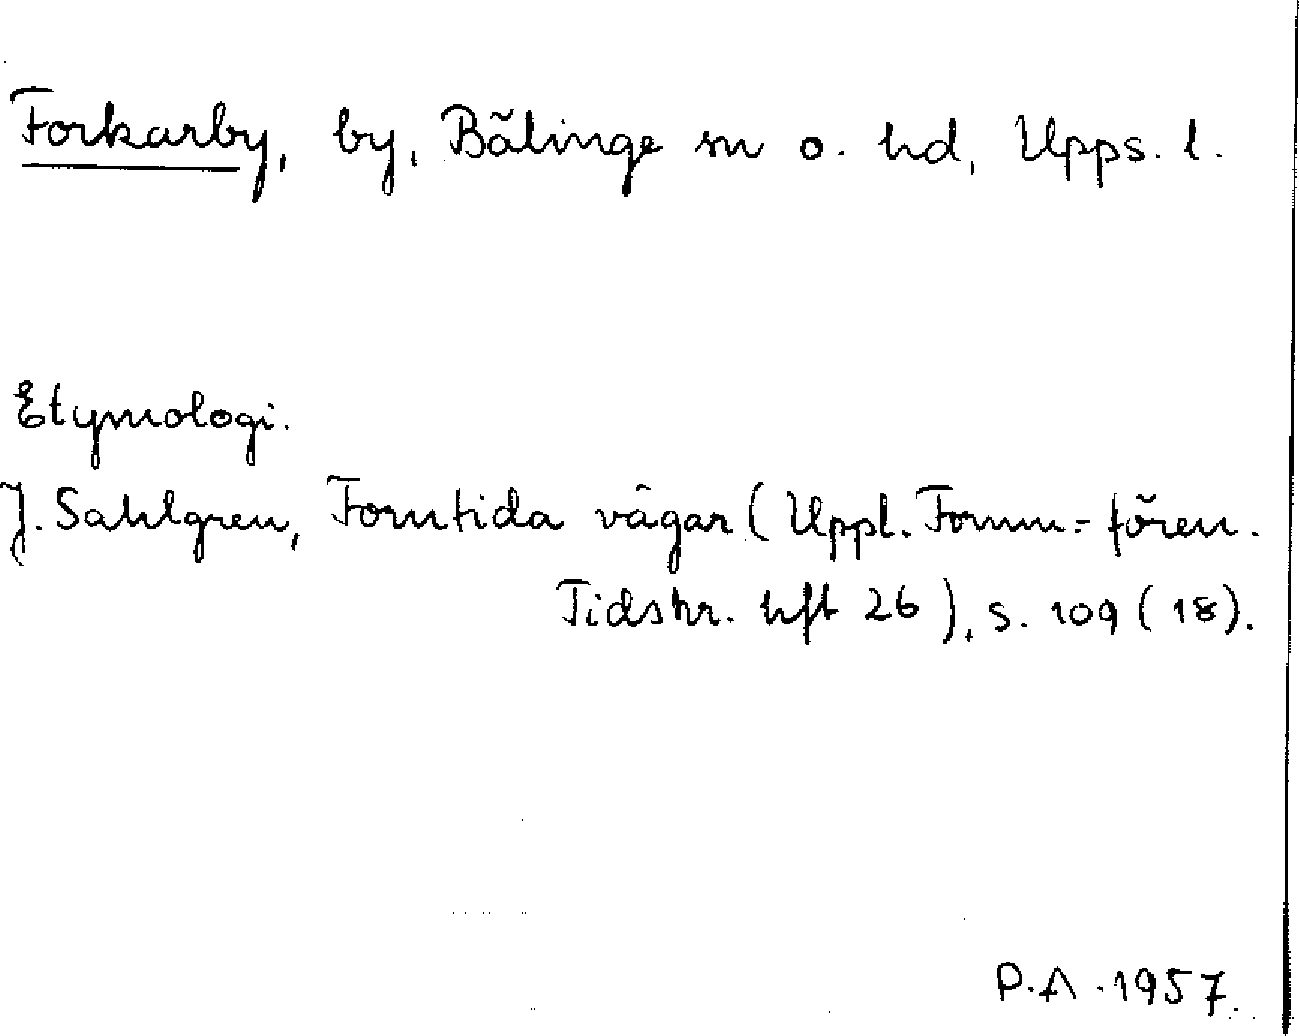 Forkarby, by, Bälinge sn o. hd, Upps. l.
Etymologi.
J. Sahlgren, Forntida vägar (Uppl. Fornm.=fören.
Tidskr. hft 26), s. 109 (18).
P.A. 1957.